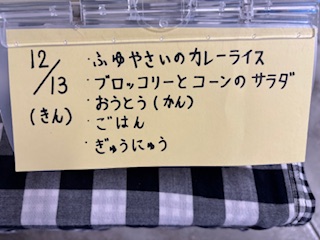 12/13
(きん)
・ふゆやさいのカレーライス
・ブロッコリーとコーンのサラダ
・おうとう(かん)
・ごはん
・ぎゅうにゅう